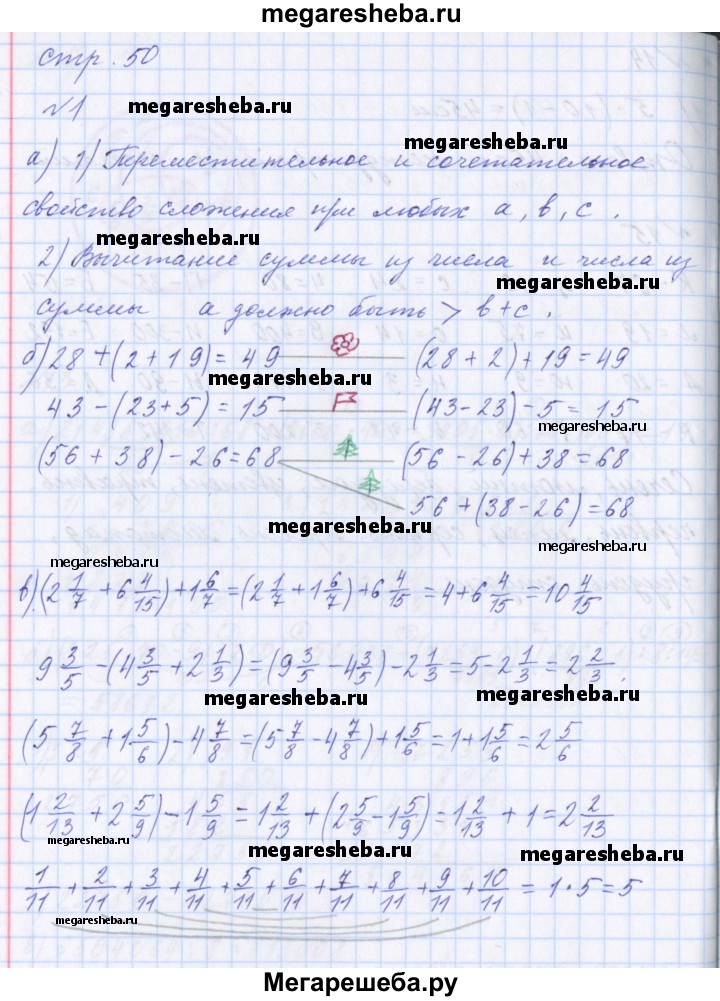 megaresheba.ru
стр. 50
№1
megaresheba.ru
megaresheba.ru
а) 1) Переместительное и сочетательное
свойство сложения при любых a, b, c.
megaresheba.ru
2) Вычитание суммы из числа и числа из
суммы a должно быть > b+c.
б) 28 + (2 + 19) = 49 (28 + 2) + 19 = 49
megaresheba.ru
43 - (23 + 5) = 15 (43 - 23) - 5 = 15
megaresheba.ru
(56 + 38) - 26 = 68 (56 - 26) + 38 = 68
56 + (38 - 26) = 68
megaresheba.ru
megaresheba.ru
megaresheba.ru
в) (2 1/7 + 6 4/15) + 1 6/7 = (2 1/7 + 1 6/7) + 6 4/15 = 4 + 6 4/15 = 10 4/15
megaresheba.ru
9 3/5 - (4 3/5 + 2 1/3) = (9 3/5 - 4 3/5) - 2 1/3 = 5 - 2 1/3 = 2 2/3.
megaresheba.ru
megaresheba.ru
(5 7/8 + 1 5/6) - 4 7/8 = (5 7/8 - 4 7/8) + 1 5/6 = 1 + 1 5/6 = 2 5/6
(1 2/13 + 2 5/9) - 1 5/9 = 1 2/13 + (2 5/9 - 1 5/9) = 1 2/13 + 1 = 2 2/13
megaresheba.ru
megaresheba.ru
megaresheba.ru
1/11 + 2/11 + 3/11 + 4/11 + 5/11 + 6/11 + 7/11 + 8/11 + 9/11 + 10/11 = 1·5 = 5
megaresheba.ru
Мегарешеба.ру